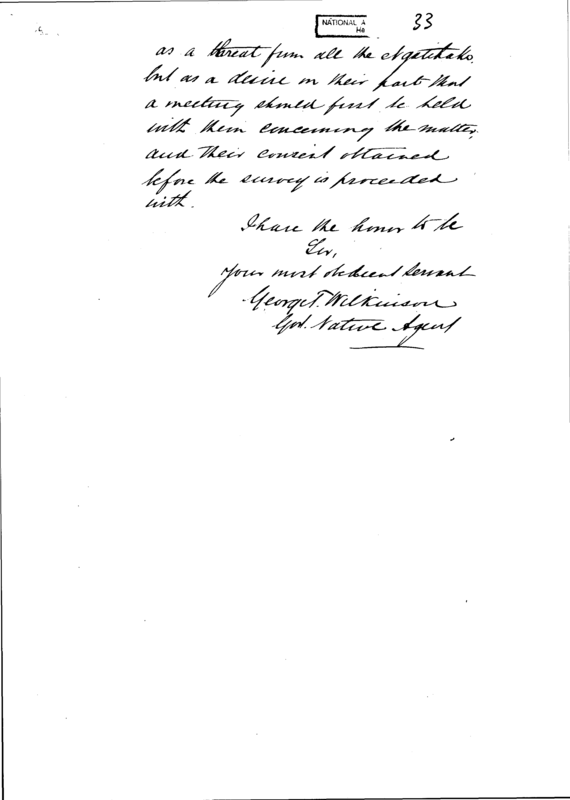 NATIONAL A
He
33
as a threat from all the Ngatihako.
but as a desire on their part that
a meeting should first be held
with them concerning the matter,
and their consent obtained
before the survey is proceeded
with.
I have the honor to be
Sir,
Your most obedient Servant
George T. Wilkinson
Gov. Native Agent